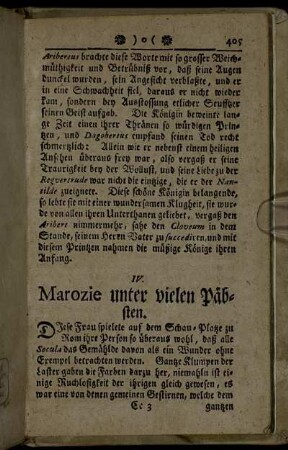 )o( 405
Aribertus brachte diese Worte mit so grosser Weich-
müthigkeit und Betrübniß vor, daß seine Augen
dunckel wurden, sein Angesicht verblaßte, und er
in eine Schwachheit fiel, daraus er nicht wieder
kam, sondern bey Ausstossung etlicher Seufftzer
seinen Geist aufgab. Die Königin beweinte lan-
ge Zeit einen ihrer Thränen so würdigen Prin-
tzen, und Dagobertus empfand seinen Tod recht
schmertzlich: Allein wie er nebenst einem heiligen
Ansehen überaus frey war, also vergaß er seine
Traurigkeit bey der Wollust, und seine Liebe zu der
Regvertrude war nicht die eintzige, die er der Nan-
tilde zueignete. Diese schöne Königin belangende,
so lebte sie mit einer wundersamen Klugheit, sie wur-
de von allen ihren Unterthanen geliebet, vergaß den
Aribert nimmermehr, sahe den Clovoeum in dem
Stande, seinem Herrn Vater zu succediren, und mit
diesem Printzen nahmen die müßige Könige ihren
Anfang.
IV.
Marozie unter vielen Päb-
sten.
DIese Frau spielete auf dem Schau-Platze zu
Rom ihre Person so überaus wohl, daß alle
Secula das Gemählde davon als ein Wunder ohne
Exempel betrachten werden. Gantze Klumpen der
Laster gaben die Farben darzu her, niemahln ist ei-
nige Ruchloßigkeit der ihrigen gleich gewesen, es
war eine von denen gemeinen Gestirnen, welche dem
Cc 3 gantzen